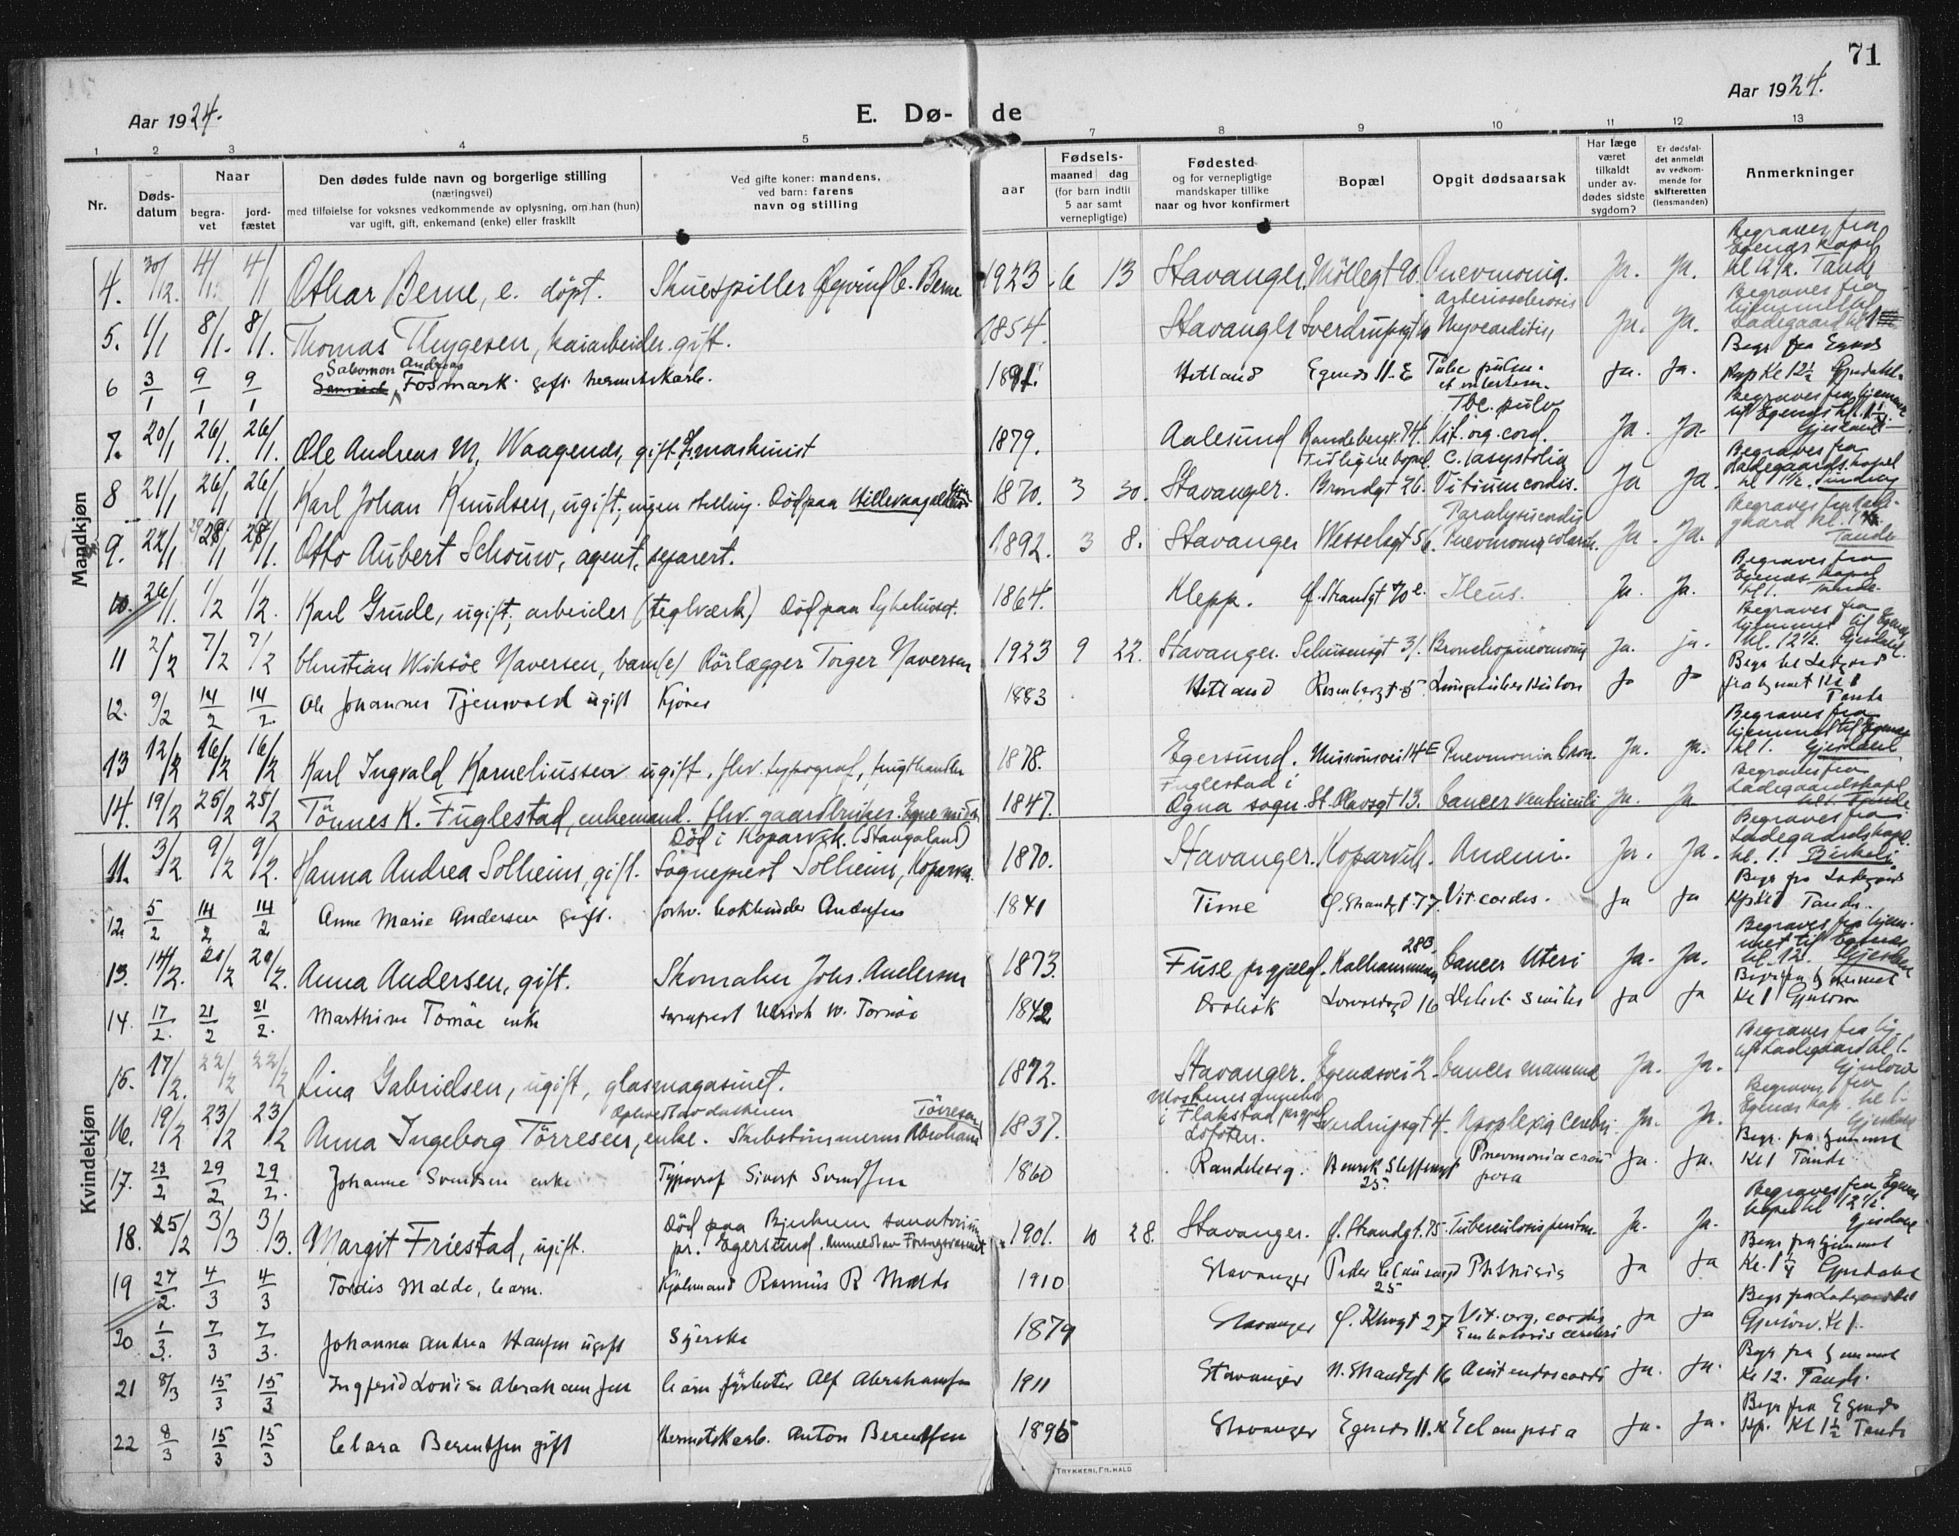 71
Aar 1924.
E. Dø- de
Aar 1924.
1 2 3 4 5 7 8 9 10 11 12 13
Nr.
Døds-datum
Naar
begra-vet
jord-fæstet
Den dødes fulde navn og borgerlige stilling
(næringsvei)
med tilføielse for voksnes vedkommende av oplysning, om han (hun)
var ugift, gift, enkemand (enke) eller fraskilt
Ved gifte koner: mandens,
ved barn: farens
navn og stilling
aar
Fødsels-
maaned dag
(for barn indtil
5 aar samt
vernepligtige)
Fødested
og for vernepligtige
mandskaper tillike
naar og hvor konfirmert
Bopæl
Opgit dødsaarsak
Har læge
været
tilkaldt
under av-
dødes sidste
sygdom?
Er dødsfal-
det anmeldt
av vedkom-
mende for
skifteretten
(lensmanden)
Anmerkninger
Mandkjøn
4. 30/12. 4/1. 4/1 Othar Berne, e. døpt. Skuespiller Øyvind C. Berne 1923 6 13 Stavanger. Møllegt 90. Pnevmonia. Ja. Ja. Begraves fra Egenæs kapel kl 12½. Tande
5. 1/1 8/1. 8/1. Thomas Thygesen, kaiarbeider. gift. 1854. Stavanger Sverdrupsgt Arteriosclerosis Myocarditis, Ja. Ja. Begraves fra hjemmet til Ladegaard kl 1
6 3/1 9/1 9/1 Salomon Andreas Fosmark gift. hermetikkarb. 1891. Hetland Egenes 11.E Tube pulm. et intestin. Ja. Ja. Begr fra Egnes Kap Kl 12½ Gjesdahl
7. 20/1 26/1. 26/1. Ole Andreas M. Waagenes, gift, maskinist 1879. Aalesund Randebergv. 74. Tbc. pulm Vit. org. cord. Ja. Ja. Begraves fra hjemmet til Egenes kl. 1¼ Gjesdahl
8 21/1 26/1 26/1 Karl Johan Knudsen, ugift, ingen stilling. Død paa Hillevaag 1870. 3 30. Stavanger. Tidligere bopel. Brøndgt 26. C. (asystolia Vitium cordis. Ja Ja. Begraves fra Ladegaards kapel kl 1½.
9. 22/1 28/1 28/1. Otto Aubert Schouw, agent, separert. 1892. 3 8. Stavanger Wesselsgt 56. Paralysis cordis Pnevmonia Ja. Ja. Begraves fra Ladegaard kl. 1 Tande
10. 26/1. 1/2 1/2. Karl Grude, ugift, arbeider (teglværk) Død paa Sykehuset. 1864. Klepp. Ø. Strandgt 70 e. Ileus. Ja. Ja. Begraves fra Egenæs kapel kl 1. Tande.
11 2/2 7/2 7/2 Christian Wiksøe Naversen, barn(e) Rørlægger Torger Naversen 1923 9 22. Stavanger. Bronchopnevmoni Ja. ja. Begraves fra hjemmet til Egenes kl. 12½. Gjesdahl.
12. 9/2 14/2 14/2. Ole Johannes Tjensvold ugift Kjører 1883 Hetland Rosenbergt 5 Ja Ja Begr kl Ladgaard fra hjemmet Kl 1 Tande
13 12/2 16/2 16/2 Karl Ingvald Korneliussen ugift, fhv. typograf, frugthandler 1878. Egersund. Museumsvei 14E Pnevmonia Cron. Ja. Ja. Begraves fra hjemmet til Egenæs kl 1. Gjesdahl
14. 19/2 25/2 25/2 Tönnes K. Fuglestad, enkemand. fhv. gaardbruker. Egne midler 1847. Fuglestad i Ogna sogn. St. Olavsgt 13. Cancer ventriculi Ja. Ja Begraves fra Ladegaardskapel kl 1. Tande
Kvindekjøn
11. 3/2 9/2 9/2. Hanna Andrea Solheim, gift. Død i Koparvik. (Stangaland) Sogneprest Solheim, Kopervik 1870. Stavanger. Koparvik. Anæmi. Ja. Ja. Begraves fra Ladegaardskapel kl. 1. Birkeli
12. 5/2 14/2 14/2 Anne Marie Andersen gift. forhv. bokbinder Andersen 1841 Time Ø. Strandgt 77. Vit. cordis. Ja Ja Begr fra Ladegaards Kp Kl 1 Tande.
13. 14/2. 20/2 20/2. Anna Andersen, gift. Skomaker Johs. Andersen 1873. Fuse prgjæld. Kalhammeren 28B Cancer Uteri Ja. Ja. Begraves fra hjemmet til Egenæs kl. 12. Gjesdahl
14. 17/2. 21/2 21/2. Marthine Tornøe enke sogneprest Ulrich W. Tornøe 1842 16 Ja Ja Begr fra hjemmet Kl 1 Gjesdahl
15. 17/2. 22/2 22/2 Lina Gabrielsen, ugift, glasmagasinet. 1872. Stavanger. Egenæsvei 2. Cancer mamma Ja. Ja. Begraves fra hj. til Ladegaard kl 1.
16. 19/2 23/2 23/2 Anna Ingeborg Tørresen, enke. Skibstømmermann Abraham Tørresen 1837. i Flakstad prgjæld Lofoten. Sverdrupsgt 4. Apoplexia Cerebri Ja. Ja. Begraves fra Egenæs kap. kl 1- Gjesdahl
17. 23/2 29/2 29/2. Johanne Svendsen enke Typograf Sivert Svendsen 1860 Randeberg. Henrik Steffensgt 25. Pnevmonia crouposa Ja. Ja. Begr. fra hjemmet Kl 1 Tande
18. 25/2 3/3 3/3. Margit Friestad, ugift. Død paa Bjerkrem sanatorium pr. Egersund. 1901. 10 28. Stavanger. Ø. Strandgt. 75. Tuberculosis Ja. Ja. Begraves fra Egenes kapel kl 12½. Gjesdahl
19 27/2. 4/3 4/3 Tordis Malde, barn. Kjølmand Rasmus R Malde 1910 Stavanger Peder Clausensgt 25 Phthisis Ja Ja Begr fra hjemmet Kl. 1¼ Gjesdahl
20 1/3. 7/3 7/3. Johanna Andrea Hansen ugift Syerske 1879 Stavanger 27 Vit. org. cordis Embolosis cerebri Ja Ja Begr fra Ladegaard Kl 1.
21 8/3 15/3 15/3 Ingfrid Louise Abrahamsen barn fyrbøter Alf Abrahamsen 1911 Stavanger N. Strandgt 16 Acut endocardi Ja. Ja. Begr fra hjemmet Kl 12. Tande.
22 8/3 15/3 15/3 Clara Berentsen gift hermetikkarb. Anton Berentsen 1895 Stavanger Egenes 11. Eclampsia Ja. Ja. Begr fra Egenes Kp. Kl 1½ Tande
TRYKKERI, FR. HALD